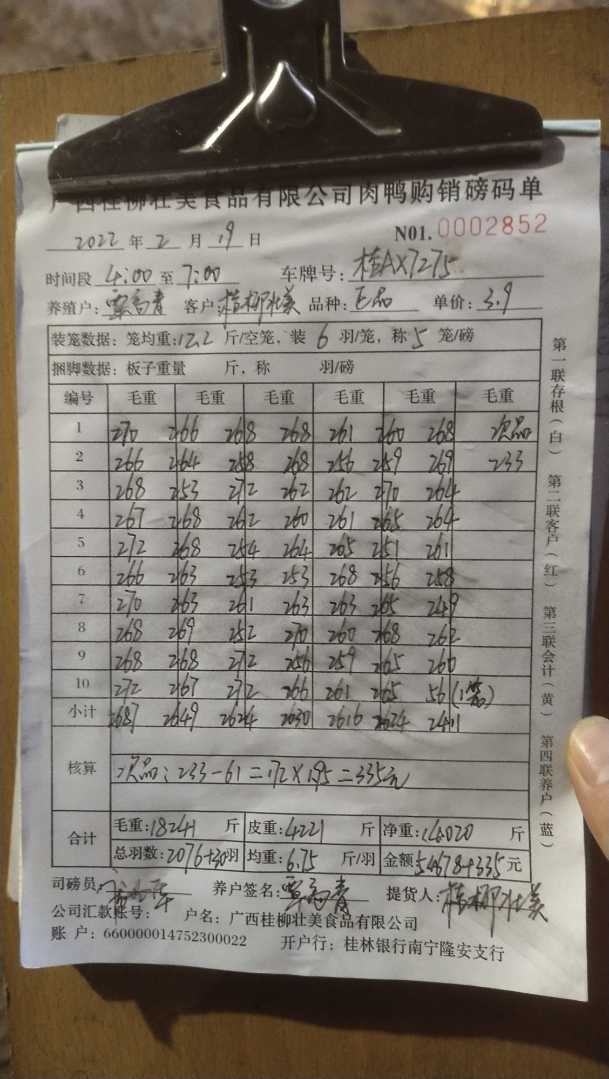 广西桂柳壮美食品有限公司肉鸭购销磅码单
2022 年 2 月 19 日 N01. 0002852
时间段 4:00 至 7:00 车牌号: 桂AX7275
养殖户: 覃高青 客户: 桂柳壮美 品种: 正品 单价: 3.9
装笼数据: 笼均重: 12.2 斤/空笼, 装 6 羽/笼, 称 5 笼/磅
捆脚数据: 板子重量 斤, 称 羽/磅
编号 毛重 毛重 毛重 毛重 毛重 毛重
1 270 266 268 268 261 260 268 次品
2 266 264 258 268 256 259 269 233
3 268 253 272 262 262 270 264
4 267 268 262 260 261 265 264
5 272 268 254 264 265 251 261
6 266 263 253 253 268 256 258
7 270 263 261 263 263 265 249
8 268 269 252 270 260 268 262
9 268 268 272 256 259 265 260
10 272 267 272 266 261 265 56(1笼)
小计 2687 2649 2624 2630 2616 2624 2411
核算 次品: 233-61=172×1.95=335元
合计 毛重: 18241 斤 皮重: 4221 斤 净重: 14020 斤
总羽数: 2076+30 羽 均重: 6.75 斤/羽 金额 54678+335 元
司磅员 养户签名: 覃高青 提货人: 桂柳壮美
公司汇款账号: 户名: 广西桂柳壮美食品有限公司
账 户: 660000014752300022 开户行: 桂林银行南宁隆安支行
第一联存根(白) 第二联客户(红) 第三联会计(黄) 第四联养户(蓝)